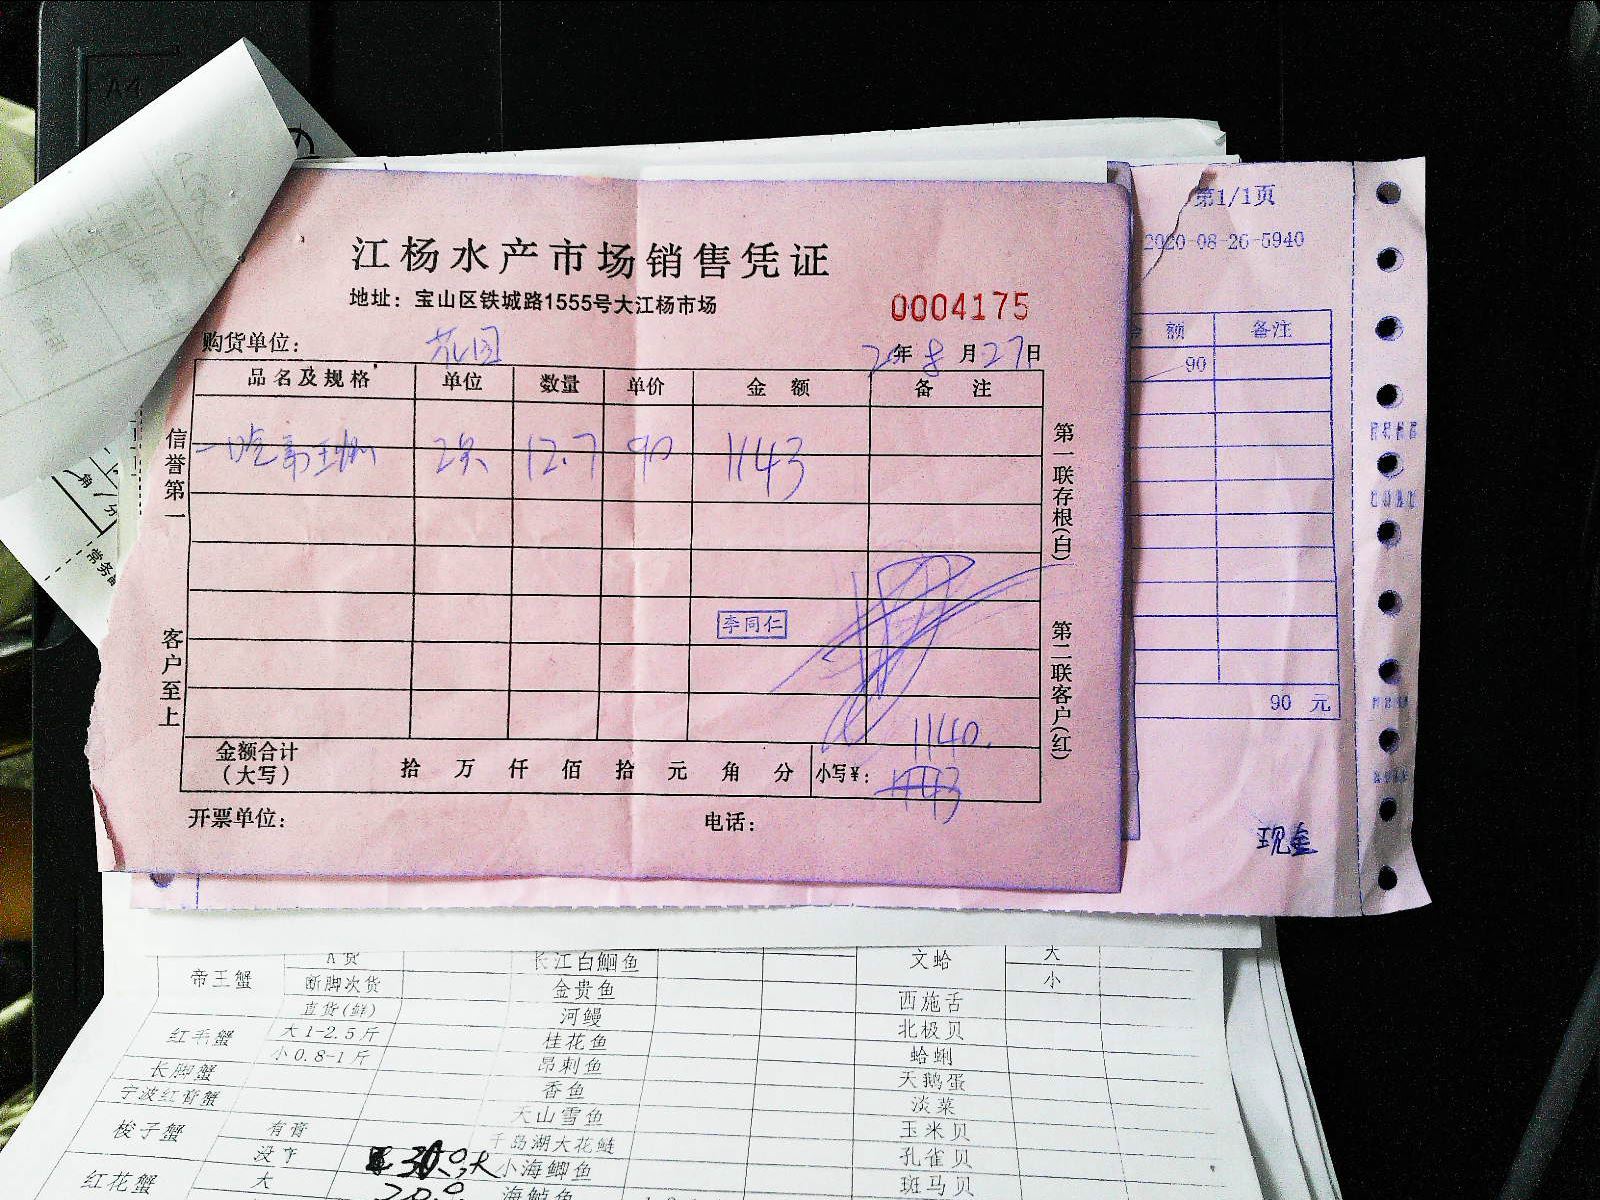 A4
江杨水产市场销售凭证
地址：宝山区铁城路1555号大江杨市场
0004175
购货单位：
20年8月27日
品名及规格 单位 数量 单价 金额 备注
2只 12.7 90 1143
信誉第一
客户至上
第一联存根(白)
第二联客户(红)
李同仁
1140.
金额合计
(大写)
拾 万 仟 佰 拾 元 角 分 小写¥： 1143
开票单位：
电话：
第1/1页
2020-08-26-5940
额 备注
90
90 元
现金
角 分
常务
A货 长江白鮰鱼 文蛤 大
帝王蟹 断脚次货 金贵鱼 小
直货(鲜) 河鳗 西施舌
红毛蟹 大1-2.5斤 桂花鱼 北极贝
小0.8-1斤 昂刺鱼 蛤蜊
长脚蟹 香鱼 天鹅蛋
宁波红膏蟹 天山雪鱼 淡菜
梭子蟹 有膏 千岛湖大花鲢 玉米贝
没 小海鲫鱼 孔雀贝
红花蟹 大 海鲈鱼 斑马贝